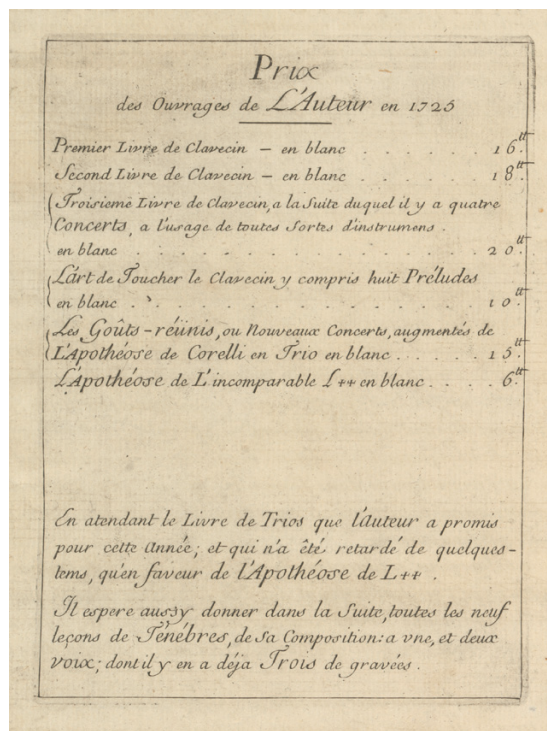 Prix
des Ouvrages de L'Auteur en 1725
Premier Livre de Clavecin – en blanc . . . . . 16.tt
Second Livre de Clavecin – en blanc . . . . . 18.tt
Troisieme Livre de Clavecin, a la Suite duquel il y a quatre
Concerts, a l'usage de toutes Sortes d'instrumens .
en blanc . . . . . . . . . . . . . . . 20.tt
L'art de Toucher le Clavecin y compris huit Préludes
en blanc . . . . . . . . . . . . . . . 10.tt
Les Goûts-réünis, ou Nouveaux Concerts, augmentés de
L'Apothéose de Corelli en Trio en blanc . . . . . 15.tt
L'Apothéose de L'incomparable L++ en blanc . . . . 6.tt
En atendant le Livre de Trios que l'Auteur a promis
pour cette Année; et qui n'a êté retardé de quelques-
tems, qu'en faveur de l'Apothéose de L++ .
Il espere aussy donner dans la Suite, toutes les neuf
leçons de Ténébres, de Sa Composition: a vne, et deux
voix; dont il y en a déja Trois de gravées .